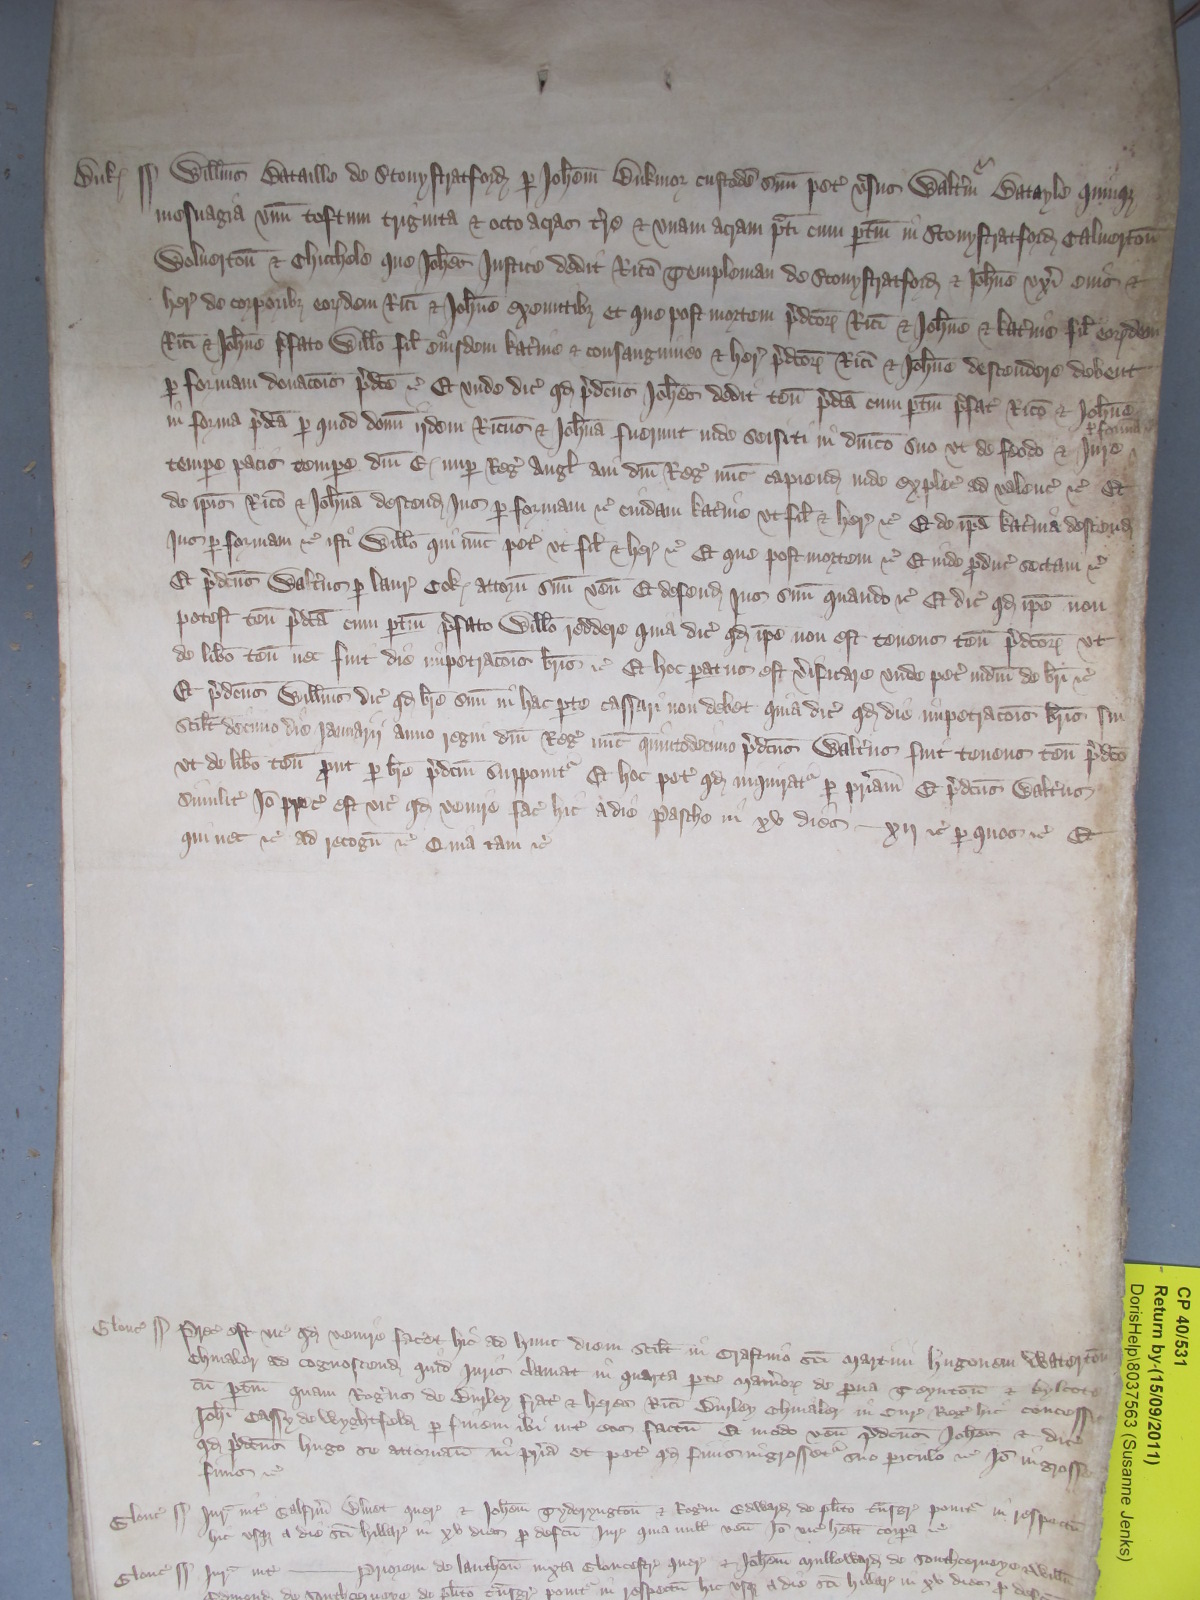 Buk ss Willms Bataille de Stonystratford p Johem Bukmor custode suu pet vsus Waltm Batayle quinq
mesuagia unu toftum triginta & octo acras tre & unam acram pti cum ptin in Stonystratford Caluerton
Woluerton & Chicchele que Johes Justice dedit Rico Templeman de Stonystratford & Johne uxi eius &
her de corporibz eordem Rici & Johne exeuntibz et que post mortem pdcor Rici & Johne & Katine fil eordem
Rici & Johne pfato Willo fil eiusdem Katine & consanguineo & her pdcor Rici & Johne descendere debent
p formam donacois pdce &c Et unde dic qd pdcus Johes dedit ten pdca cum ptin pfat Rico & Johne
in forma pdca p quod donu ijdem Ricus & Johna fuerunt inde seisiti in dnico suo ut de feodo & Jure
p forma &c
tempe pacis tempe dni E nup Reg Angl aui dni Reg nuc capiend inde explet ad valenc &c Et
de ipis Rico & Johna descend Jus p formam &c cuidam Katine ut fil & her &c Et de ipa Katina descend
Jus p formam &c isti Willo qui nuc pet ut fil & her &c Et que post mortem &c Et inde pduc sectam &c
Et pdcus Waltus p Laur Cok attorn suu ven Et defend Jus suu quando &c Et dic qd ipe non
potest ten pdca cum ptin pfato Willo reddere quia dic qd ipe non est tenens ten pdcor ut
de libo ten nec fuit die impetracois bris &c Et hoc patus est vificare unde pet iudm de bri &c
Et pdcus Willms dic qd bre suu in hac pte cassari non debet quia dic qd die impetracois bris sui
scilt decimo die Januarij anno regni dni Reg nuc quintodecimo pdcus Waltus fuit tenens ten pdco
ut de libo ten put p bre pdcm supponit Et hoc pet qd inquirat p priam Et pdcus Waltus
similit Jo pcept est vic qd venire fac hic a die Pasche in xv dies xij &c p quos &c Et
qui nec &c ad recogn &c Quia tam &c
Glouc ss Prec est vic qd venire facet hic ad hunc diem scilt in Crastino sci Martini Hugonem Waterton
Chiualer ad cognoscend quid Juris clamat in quarta pte manior de pua Teynton &
cu ptin quam Rogus de Burley frat & heres Rici Burley Chiualer in Cur Reg hic concess
Johi Cassy de Wyghtfeld p finem ibi int eos factu Et modo ven pdcus Johes & dic
qd pdcus Hugo se attornau in pria et pet qd finis ingrosset suo piculo &c Jo ingrosset
finis &c
Glouc ss Jur int Galfrm quer & Johem Tyderyngton & Rogm Edward de plito tnsgr ponit in respectu
hic usq a die sci Hillar in xv dies p defcu Jur quia null ven Jo vic heat corpa &c
Glouc ss Jur int Priorem de Lanthon iuxta Gloucestr quer & Johem Mulleward de Southcerneye & Willm
de Southcerneye de plito tnsgr ponit in respectu hic usq a die sci Hillar in xv dies p
CP 40/531
Return by (15/09/2011)
DorisHelp\8037563 (Susanne Jenks)